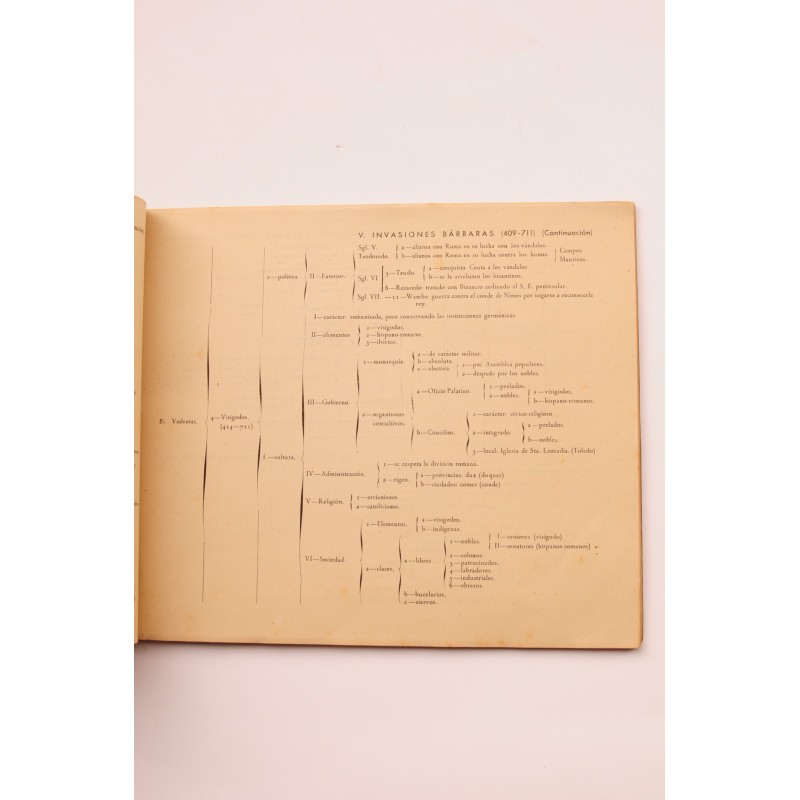 V. INVASIONES BÁRBARAS (409-711) (Continuación)
Sgl. V.
Teodoredo.
a—alianza con Roma en su lucha con los vándalos.
b—alianza con Roma en su lucha contra los hunos.
Campos
Mauricos.
e—política
II—Exterior.
Sgl. VI
3—Teudo.
a—conquista Ceuta a los vándalos.
b—se la arrebatan los bizantinos.
6—Recaredo: tratado con Bizancio cediendo el S. E. peninsular.
Sgl. VII.
—12—Wamba: guerra contra el conde de Nimes por negarse a reconocerle
rey.
I—carácter: romanizada, pero conservando las instituciones germánicas.
II—elementos
1—visigodos.
2—hispano-romano.
3—ibérico.
III—Gobierno.
1—monarquía
a—de carácter militar.
b—absoluta.
c—electiva
1—por Asamblea populares.
2—después por los nobles.
2—organismos
consultivos.
a—Oficio Palatino.
1—prelados.
2—nobles.
a—visigodos.
b—hispano-romanos.
b—Concilios.
1—carácter: cívico-religioso.
2—integrado.
a—prelados.
b—nobles.
3—local: Iglesia de Sta. Leocadia. (Toledo)
B: Violentas.
4—Visigodos.
(414—711)
f—cultura.
IV—Administración.
1—se respeta la división romana.
2—rigen.
a—provincias: dux (duques)
b—ciudades: comes (conde)
V—Religión.
1—arrianismo.
2—catolicismo.
VI—Sociedad.
1—Elementos.
a—visigodos.
b—indígenas.
2—clases.
a—libres.
1—nobles.
I—seniores (visigodo)
II—senatores (hispano-romanos)
2—colonos
3—patrocinados.
4—labradores.
5—industriales
6—obreros.
b—bucelarios.
c—siervos.